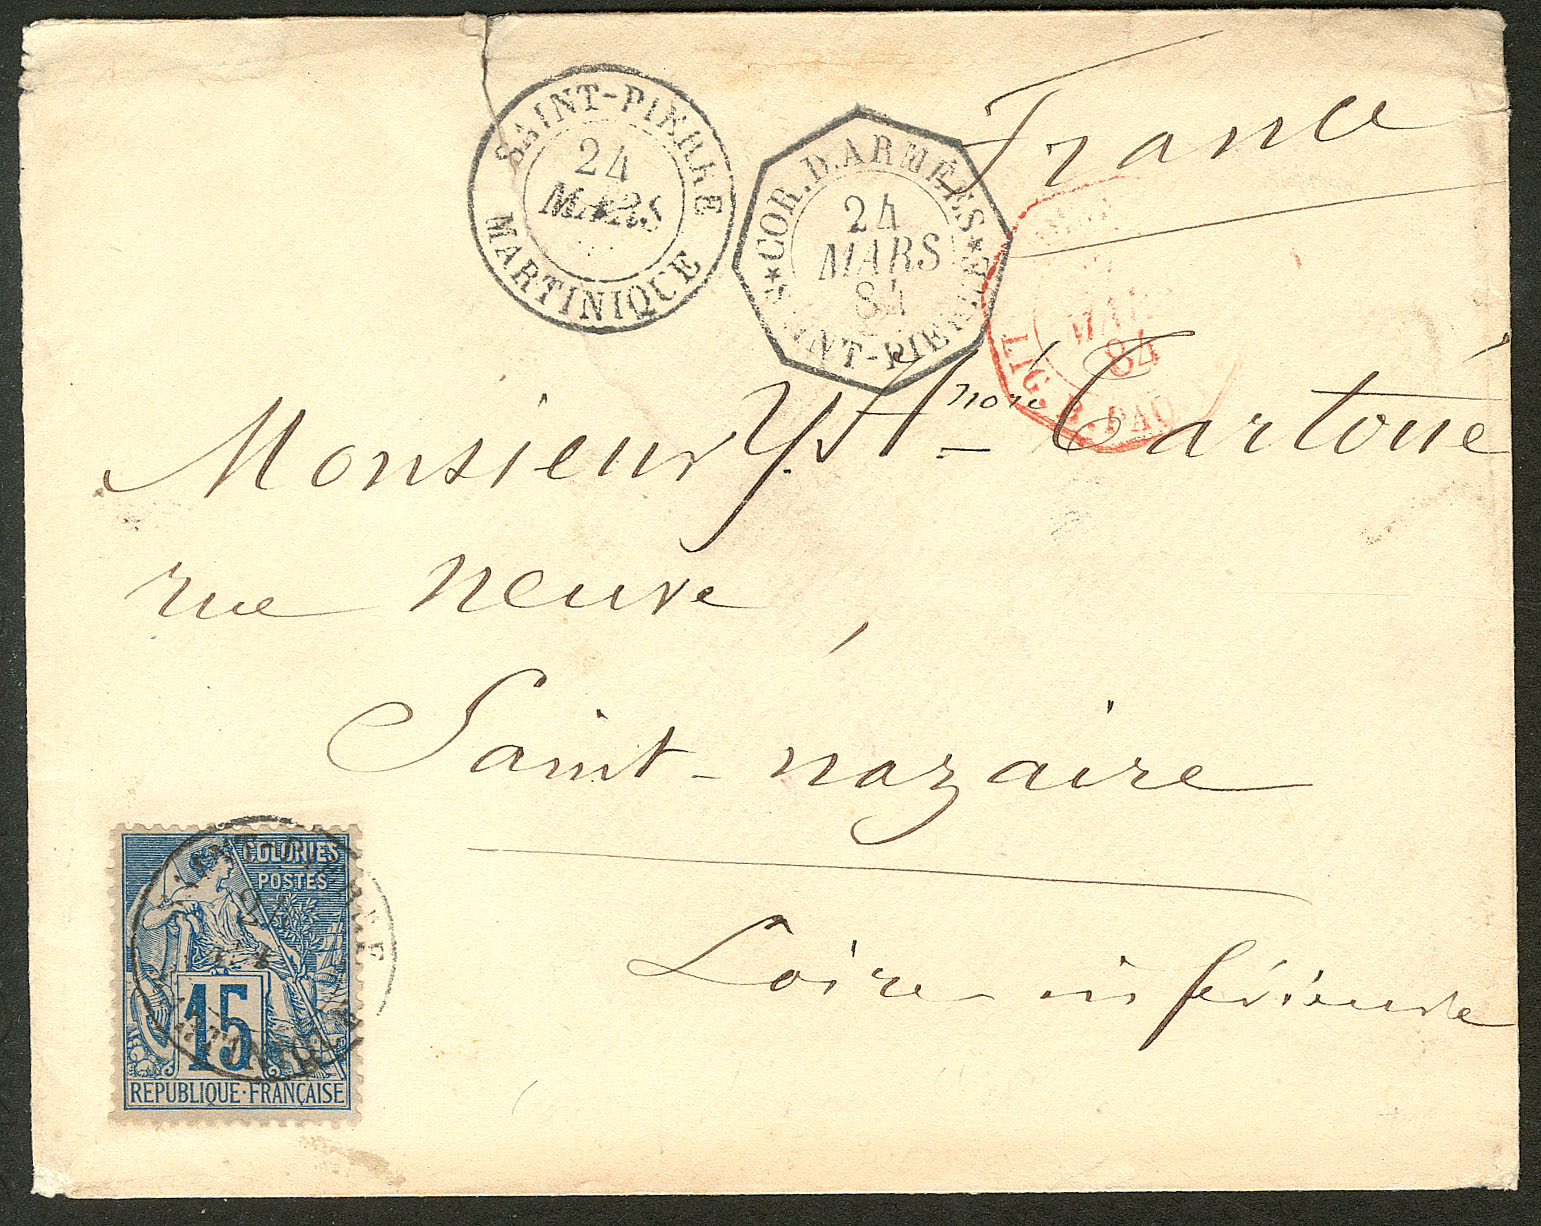 France
SAINT-PIERRE
24
MARS
MARTINIQUE
COR. D. ARMÉES
24
MARS
84
SAINT-PIERRE
MARS
84
LIG. B. PAQ
Monsieur
rue neuve,
Saint-nazaire
Loire inférieure
COLONIES
POSTES
24
15
REPUBLIQUE·FRANÇAISE
MARTINIQUE